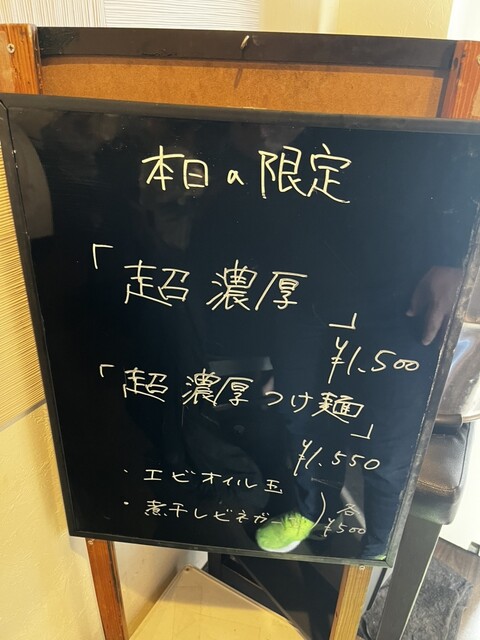 本日の限定
「超濃厚」
¥1,500
「超濃厚つけ麺」
¥1,550
・エビオイル玉
・煮干しビネガー 各¥500